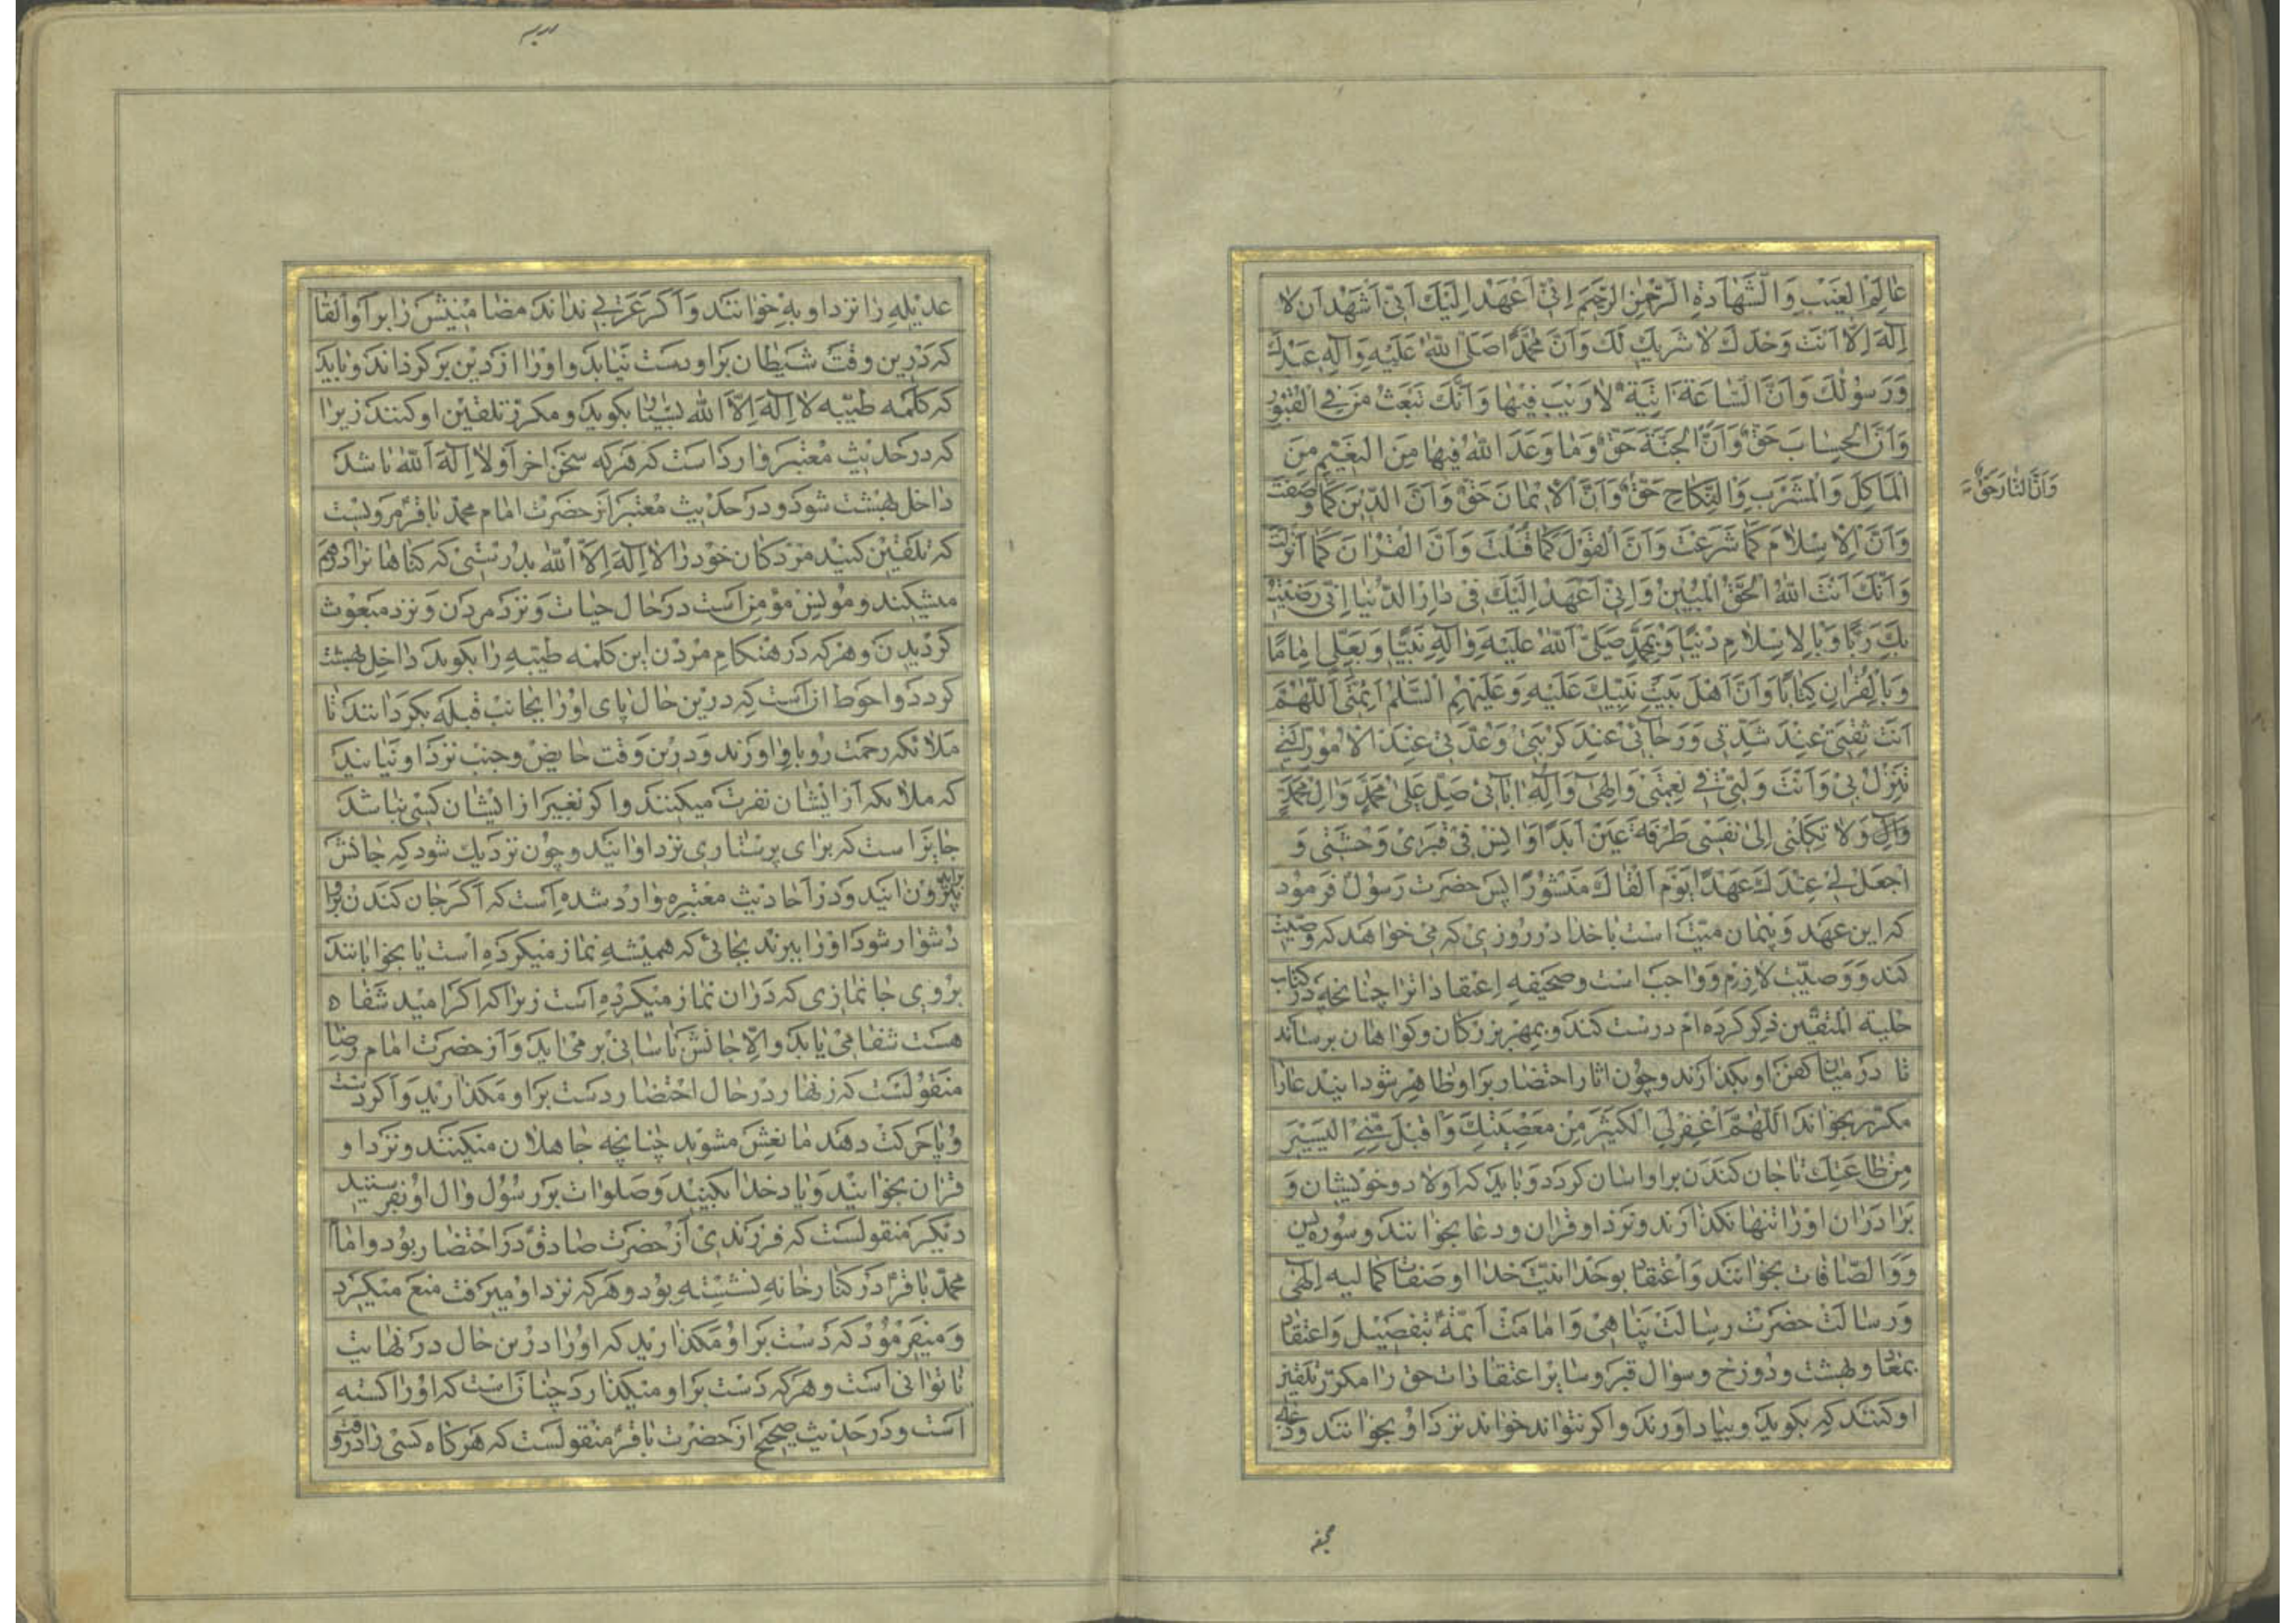 عَالِمَ الْغَيْبِ وَالشَّهَادَةِ الرَّحْمٰنَ الرَّحِيمَ اِنّى اَعْهَدُ اِلَيْكَ اَنّى اَشْهَدُ اَنْ لا
اِلٰهَ اِلّا اَنْتَ وَحْدَكَ لا شَرِيكَ لَكَ وَاَنَّ مُحَمَّدًا صَلَّى اللهُ عَلَيْهِ وَآلِهِ عَبْدُكَ
وَرَسُولُكَ وَاَنَّ السّاعَةَ اتِيَةٌ لا رَيْبَ فِيهَا وَاَنَّكَ تَبْعَثُ مَنْ فِى الْقُبُورِ
وَاَنَّ الْحِسَابَ حَقٌّ وَاَنَّ الْجَنَّةَ حَقٌّ وَمَا وَعَدَ اللهُ فِيهَا مِنَ النَّعِيمِ مِنَ
الْمَاْكَلِ وَالْمَشْرَبِ وَالنِّكَاحِ حَقٌّ وَاَنَّ الْاِيْمَانَ حَقٌّ وَاَنَّ الدِّيْنَ كَمَا وَصَفْتَ
وَاَنَّ النّارَ حَقٌّ
وَاَنَّ الْاِسْلَامَ كَمَا شَرَعْتَ وَاَنَّ الْقَوْلَ كَمَا قُلْتَ وَاَنَّ الْقُرْانَ كَمَا اَنْزَلْتَ
وَاَنَّكَ اَنْتَ اللهُ الْحَقُّ الْمُبِيْنُ وَاِنّى اَعْهَدُ اِلَيْكَ فى دَارِ الدُّنْيا اِنّى رَضِيْتُ
بِكَ رَبًّا وَبِالْاِسْلامِ دِيْنًا وَبِمُحَمَّدٍ صَلَّى اللهُ عَلَيْهِ وَآلِهِ نَبِيًّا وَبِعَلِىٍّ اِمَامًا
وَبِالْقُرْانِ كِتَابًا وَاَنَّ اَهْلَ بَيْتِ نَبِيِّكَ عَلَيْهِ وَعَلَيْهِمُ السَّلٰمُ اَئِمَّتى اَللّهُمَّ
اَنْتَ ثِقَتى عِنْدَ شِدَّتى وَرَجَائى عِنْدَ كُرْبَتى وَعُدَّتى عِنْدَ الْاُمُورِ الَّتى
تَنْزِلُ بى وَاَنْتَ وَلِيّى فى نِعْمَتى وَاِلٰهى وَاِلٰهُ ابَائى صَلِّ عَلى مُحَمَّدٍ وَالِ مُحَمَّدٍ
وَآلِهِ وَلا تَكِلْنى اِلى نَفْسى طَرْفَةَ عَيْنٍ اَبَدًا وَانِسْ فى قَبْرى وَحْشَتى وَ
اجْعَلْ لى عِنْدَكَ عَهْدًا يَوْمَ اَلْقَاكَ مَنْشُورًا پس حضرت رسول فرمود
كه اين عهد و پيمان ميت است با خدا در روزى كه مى خواهد كه وصيت
كند و وصيت لازم و واجب است و صحيفه اعتقادات را چنانچه در كتاب
حلية المتقين ذكر كرده ام درست كند و بمهر بزركان و كواهان برساند
تا در ميان كفن او بكذارند و چون اثار احتضار بر او ظاهر شود اين دعا را
مكرر بخواند اَللّهُمَّ اغْفِرْ لِىَ الْكَثِيْرَ مِنْ مَعْصِيَتِكَ وَاقْبَلْ مِنِّى الْيَسِيْرَ
مِنْ طَاعَتِكَ تا جان كندن بر او اسان كردد و بايد كه اولاد و خويشان و
برادران او را تنها نكذارند و نزد او قران و دعا بخوانند و سوره يس
و والصافات بخوانند و اعتقاد بوحدانيت خدا و صفات كماليه الهى
و رسالت حضرت رسالت پناهى و امامت ائمه بتفصيل و اعتقاد
بمعاد و بهشت و دوزخ و سوال قبر و ساير اعتقادات حق را مكرر تلقين
او كنند كه بكويد و بياد اورند و اكر نتواند خواند نزد او بخوانند و دعاى
عديله را نزد او به خوانند و اكر عربى نداند مضامينش را بر او القا
كه درين وقت شيطان بر او دست نيابد و او را از دين بر كرداند و بايد
كه كلمه طيبه لا اِلهَ اِلّا الله بسيار بكويد و مكرر تلقين او كنند زيرا
كه در حديث معتبر وارد است كه هركه سخن اخر او لا اِلهَ الله باشد
داخل بهشت شود و در حديث معتبر از حضرت امام محمد باقر مرويست
كه تلقين كنيد مردكان خود را لا اِلهَ اِلّا الله بدرستى كه كناهانرا درهم
ميشكند و مونس مومن است در حال حيات و نزد مردن و نزد مبعوث
كرديدن و هركه در هنكام مردن اين كلمه طيبه را بكويد داخل بهشت
كردد و احوط انست كه درين حال پاى او را بجانب قبله بكردانند تا
ملائكه رحمت رو باو اورند و درين وقت حايض و جنب نزد او نيايند
كه ملائكه از ايشان نفرت ميكنند و اكر بغير از ايشان كسى نباشد
جايز است كه براى پرستارى نزد او ايند و چون نزديك شود كه جانش
برايد بيرون ايند و در احاديث معتبره وارد شده است كه اكر جان كندن بر او
دشوار شود او را ببرند بجائى كه هميشه نماز ميكرده است يا بخوابانند
بروى جانمازى كه در ان نماز ميكرده است زيرا كه اكر اميد شفا
هست شفا مى يابد و الّا جانش باسانى بر مى ايد و از حضرت امام رضا
منقولست كه زنهار در حال احتضار دست بر او مكذاريد و اكر دست
و پا حركت دهد مانعش مشويد چنانچه جاهلان ميكنند و نزد او
قران بخوانيد و ياد خدا بكنيد و صلوات بر رسول و ال او بفرستيد
ديكر منقولست كه فرزندى از حضرت صادق در احتضار بود و امام
محمد باقر در كنار خانه نشسته بود و هركه نزد او ميرفت منع ميكرد
و ميفرمود كه دست بر او مكذاريد كه او را درين حال در نهايت
ناتوانى است و هركه دست بر او ميكذارد چنانست كه او را كشته
است و در حديث صحيح از حضرت باقر منقولست كه هركاه كسى را در وقت